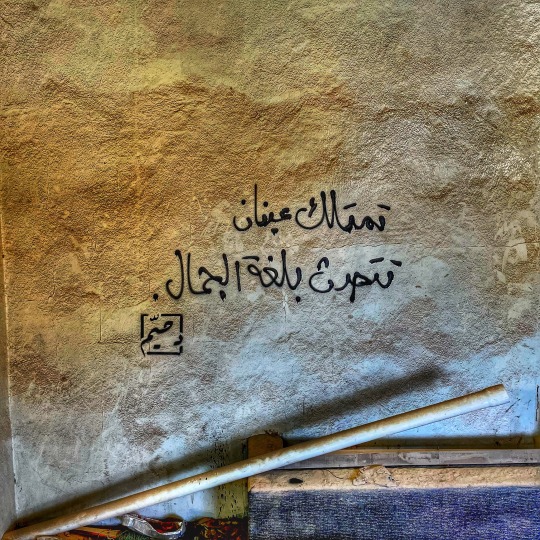 تمتلك عينان
تتحدث بلغة الجمال.